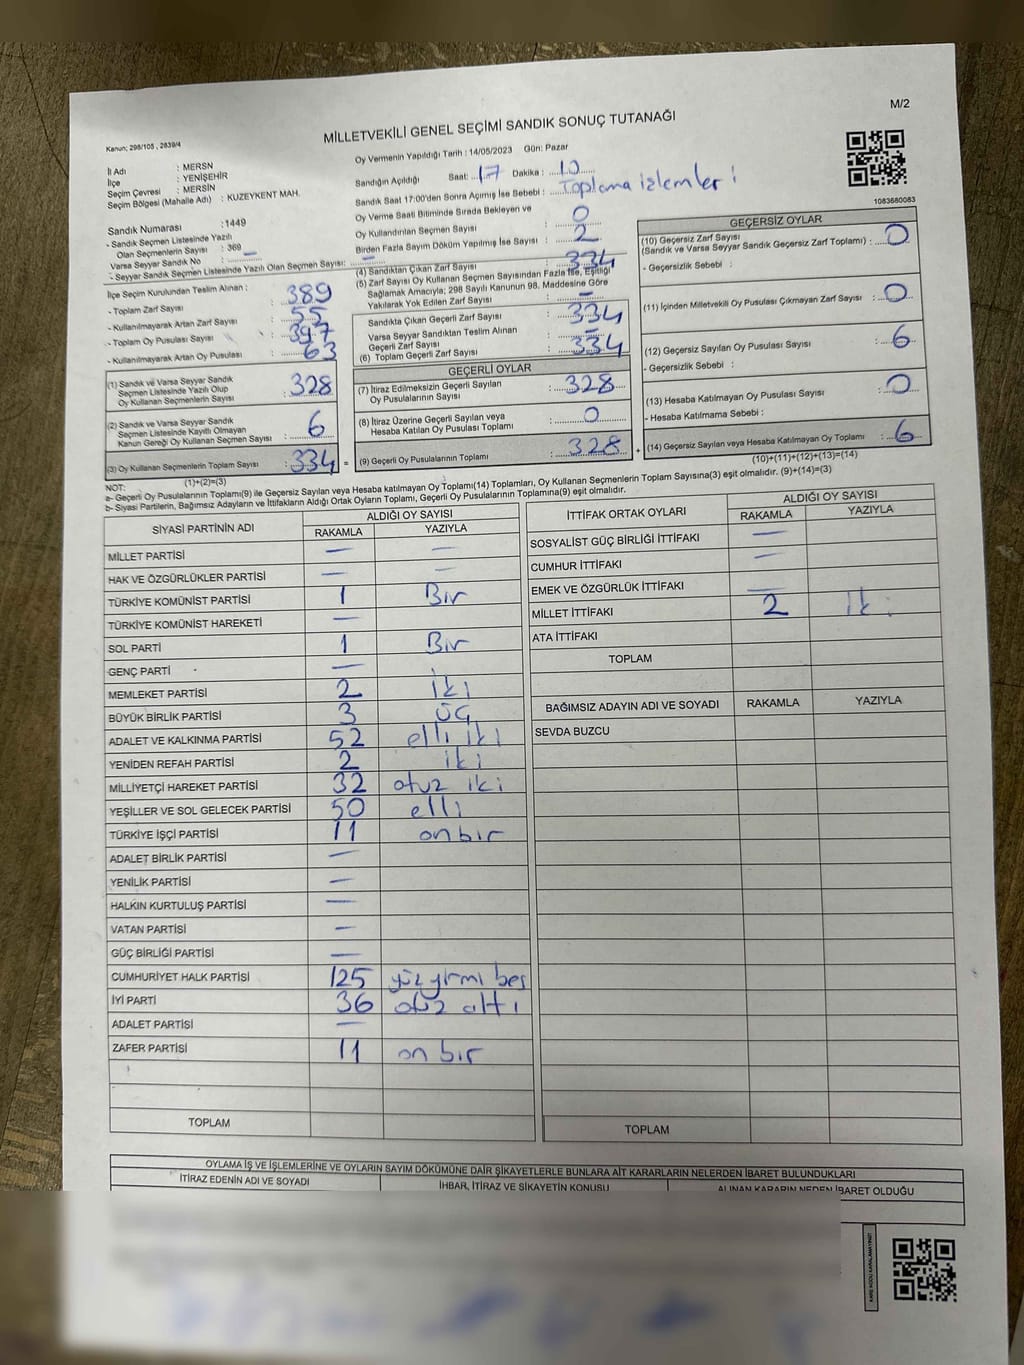 M/2
MİLLETVEKİLİ GENEL SEÇİMİ SANDIK SONUÇ TUTANAĞI
Kanun; 298/105 , 2839/4
İl Adı : MERSN
İlçe : YENİŞEHİR
Seçim Çevresi : MERSİN
Seçim Bölgesi (Mahalle Adı) : KUZEYKENT MAH.
Oy Vermenin Yapıldığı Tarih : 14/05/2023 Gün: Pazar
Sandığın Açıldığı Saat: 17 Dakika : 10
Sandık Saat 17:00'den Sonra Açımış İse Sebebi : Toplama izlemleri
Oy Verme Saati Bitiminde Sırada Bekleyen ve
Oy Kullandırılan Seçmen Sayısı : 0
Birden Fazla Sayım Döküm Yapılmış İse Sayısı : 2
1083660083
Sandık Numarası :1449
- Sandık Seçmen Listesinde Yazılı
Olan Seçmenlerin Sayısı : 369
Varsa Seyyar Sandık No : –
- Seyyar Sandık Seçmen Listesinde Yazılı Olan Seçmen Sayısı: –
İlçe Seçim Kurulundan Teslim Alınan :
- Toplam Zarf Sayısı : 389
- Kullanılmayarak Artan Zarf Sayısı : 55
- Toplam Oy Pusulası Sayısı : 397
- Kullanılmayarak Artan Oy Pusulası : 63
(1) Sandık ve Varsa Seyyar Sandık
Seçmen Listesinde Yazılı Olup
Oy Kullanan Seçmenlerin Sayısı : 328
(2) Sandık ve Varsa Seyyar Sandık
Seçmen Listesinde Kayıtlı Olmayan
Kanun Gereği Oy Kullanan Seçmen Sayısı : 6
(3) Oy Kullanan Seçmenlerin Toplam Sayısı : 334 =
(1)+(2)=(3)
(4) Sandıktan Çıkan Zarf Sayısı : 334
(5) Zarf Sayısı Oy Kullanan Seçmen Sayısından Fazla İse, Eşitliği
Sağlamak Amacıyla; 298 Sayılı Kanunun 98. Maddesine Göre
Yakılarak Yok Edilen Zarf Sayısı : –
Sandıkta Çıkan Geçerli Zarf Sayısı : 334
Varsa Seyyar Sandıktan Teslim Alınan
Geçerli Zarf Sayısı : –
(6) Toplam Geçerli Zarf Sayısı : 334
GEÇERLİ OYLAR
(7) İtiraz Edilmeksizin Geçerli Sayılan
Oy Pusulalarının Sayısı : 328
(8) İtiraz Üzerine Geçerli Sayılan veya
Hesaba Katılan Oy Pusulası Toplamı : 0
(9) Geçerli Oy Pusulalarının Toplamı : 328 +
GEÇERSİZ OYLAR
(10) Geçersiz Zarf Sayısı
(Sandık ve Varsa Seyyar Sandık Geçersiz Zarf Toplamı) : 0
- Geçersizlik Sebebi :
(11) İçinden Milletvekili Oy Pusulası Çıkmayan Zarf Sayısı : 0
(12) Geçersiz Sayılan Oy Pusulası Sayısı : 6
- Geçersizlik Sebebi :
(13) Hesaba Katılmayan Oy Pusulası Sayısı : 0
- Hesaba Katılmama Sebebi :
(14) Geçersiz Sayılan veya Hesaba Katılmayan Oy Toplamı : 6
(10)+(11)+(12)+(13)=(14)
NOT:
a- Geçerli Oy Pusulalarının Toplamı(9) ile Geçersiz Sayılan veya Hesaba katılmayan Oy Toplamı(14) Toplamları, Oy Kullanan Seçmenlerin Toplam Sayısına(3) eşit olmalıdır. (9)+(14)=(3)
b- Siyasi Partilerin, Bağımsız Adayların ve İttifakların Aldığı Ortak Oyların Toplamı, Geçerli Oy Pusulalarının Toplamına(9) eşit olmalıdır.
SİYASİ PARTİNİN ADI ALDIĞI OY SAYISI
RAKAMLA YAZIYLA
MİLLET PARTİSİ – –
HAK VE ÖZGÜRLÜKLER PARTİSİ – –
TÜRKİYE KOMÜNİST PARTİSİ 1 Bir
TÜRKİYE KOMÜNİST HAREKETİ –
SOL PARTİ 1 Bir
GENÇ PARTİ –
MEMLEKET PARTİSİ 2 iki
BÜYÜK BİRLİK PARTİSİ 3 üç
ADALET VE KALKINMA PARTİSİ 52 elli iki
YENİDEN REFAH PARTİSİ 2 iki
MİLLİYETÇİ HAREKET PARTİSİ 32 otuz iki
YEŞİLLER VE SOL GELECEK PARTİSİ 50 elli
TÜRKİYE İŞÇİ PARTİSİ 11 onbir
ADALET BİRLİK PARTİSİ –
YENİLİK PARTİSİ –
HALKIN KURTULUŞ PARTİSİ –
VATAN PARTİSİ –
GÜÇ BİRLİĞİ PARTİSİ –
CUMHURİYET HALK PARTİSİ 125 yüz yirmi beş
İYİ PARTİ 36 otuz altı
ADALET PARTİSİ –
ZAFER PARTİSİ 11 on bir
TOPLAM
İTTİFAK ORTAK OYLARI ALDIĞI OY SAYISI
RAKAMLA YAZIYLA
SOSYALİST GÜÇ BİRLİĞİ İTTİFAKI –
CUMHUR İTTİFAKI –
EMEK VE ÖZGÜRLÜK İTTİFAKI –
MİLLET İTTİFAKI 2 iki
ATA İTTİFAKI
TOPLAM
BAĞIMSIZ ADAYIN ADI VE SOYADI RAKAMLA YAZIYLA
SEVDA BUZCU
TOPLAM
OYLAMA İŞ VE İŞLEMLERİNE VE OYLARIN SAYIM DÖKÜMÜNE DAİR ŞİKAYETLERLE BUNLARA AİT KARARLARIN NELERDEN İBARET BULUNDUKLARI
İTİRAZ EDENİN ADI VE SOYADI İHBAR, İTİRAZ VE ŞİKAYETİN KONUSU ALINAN KARARIN NEDEN İBARET OLDUĞU